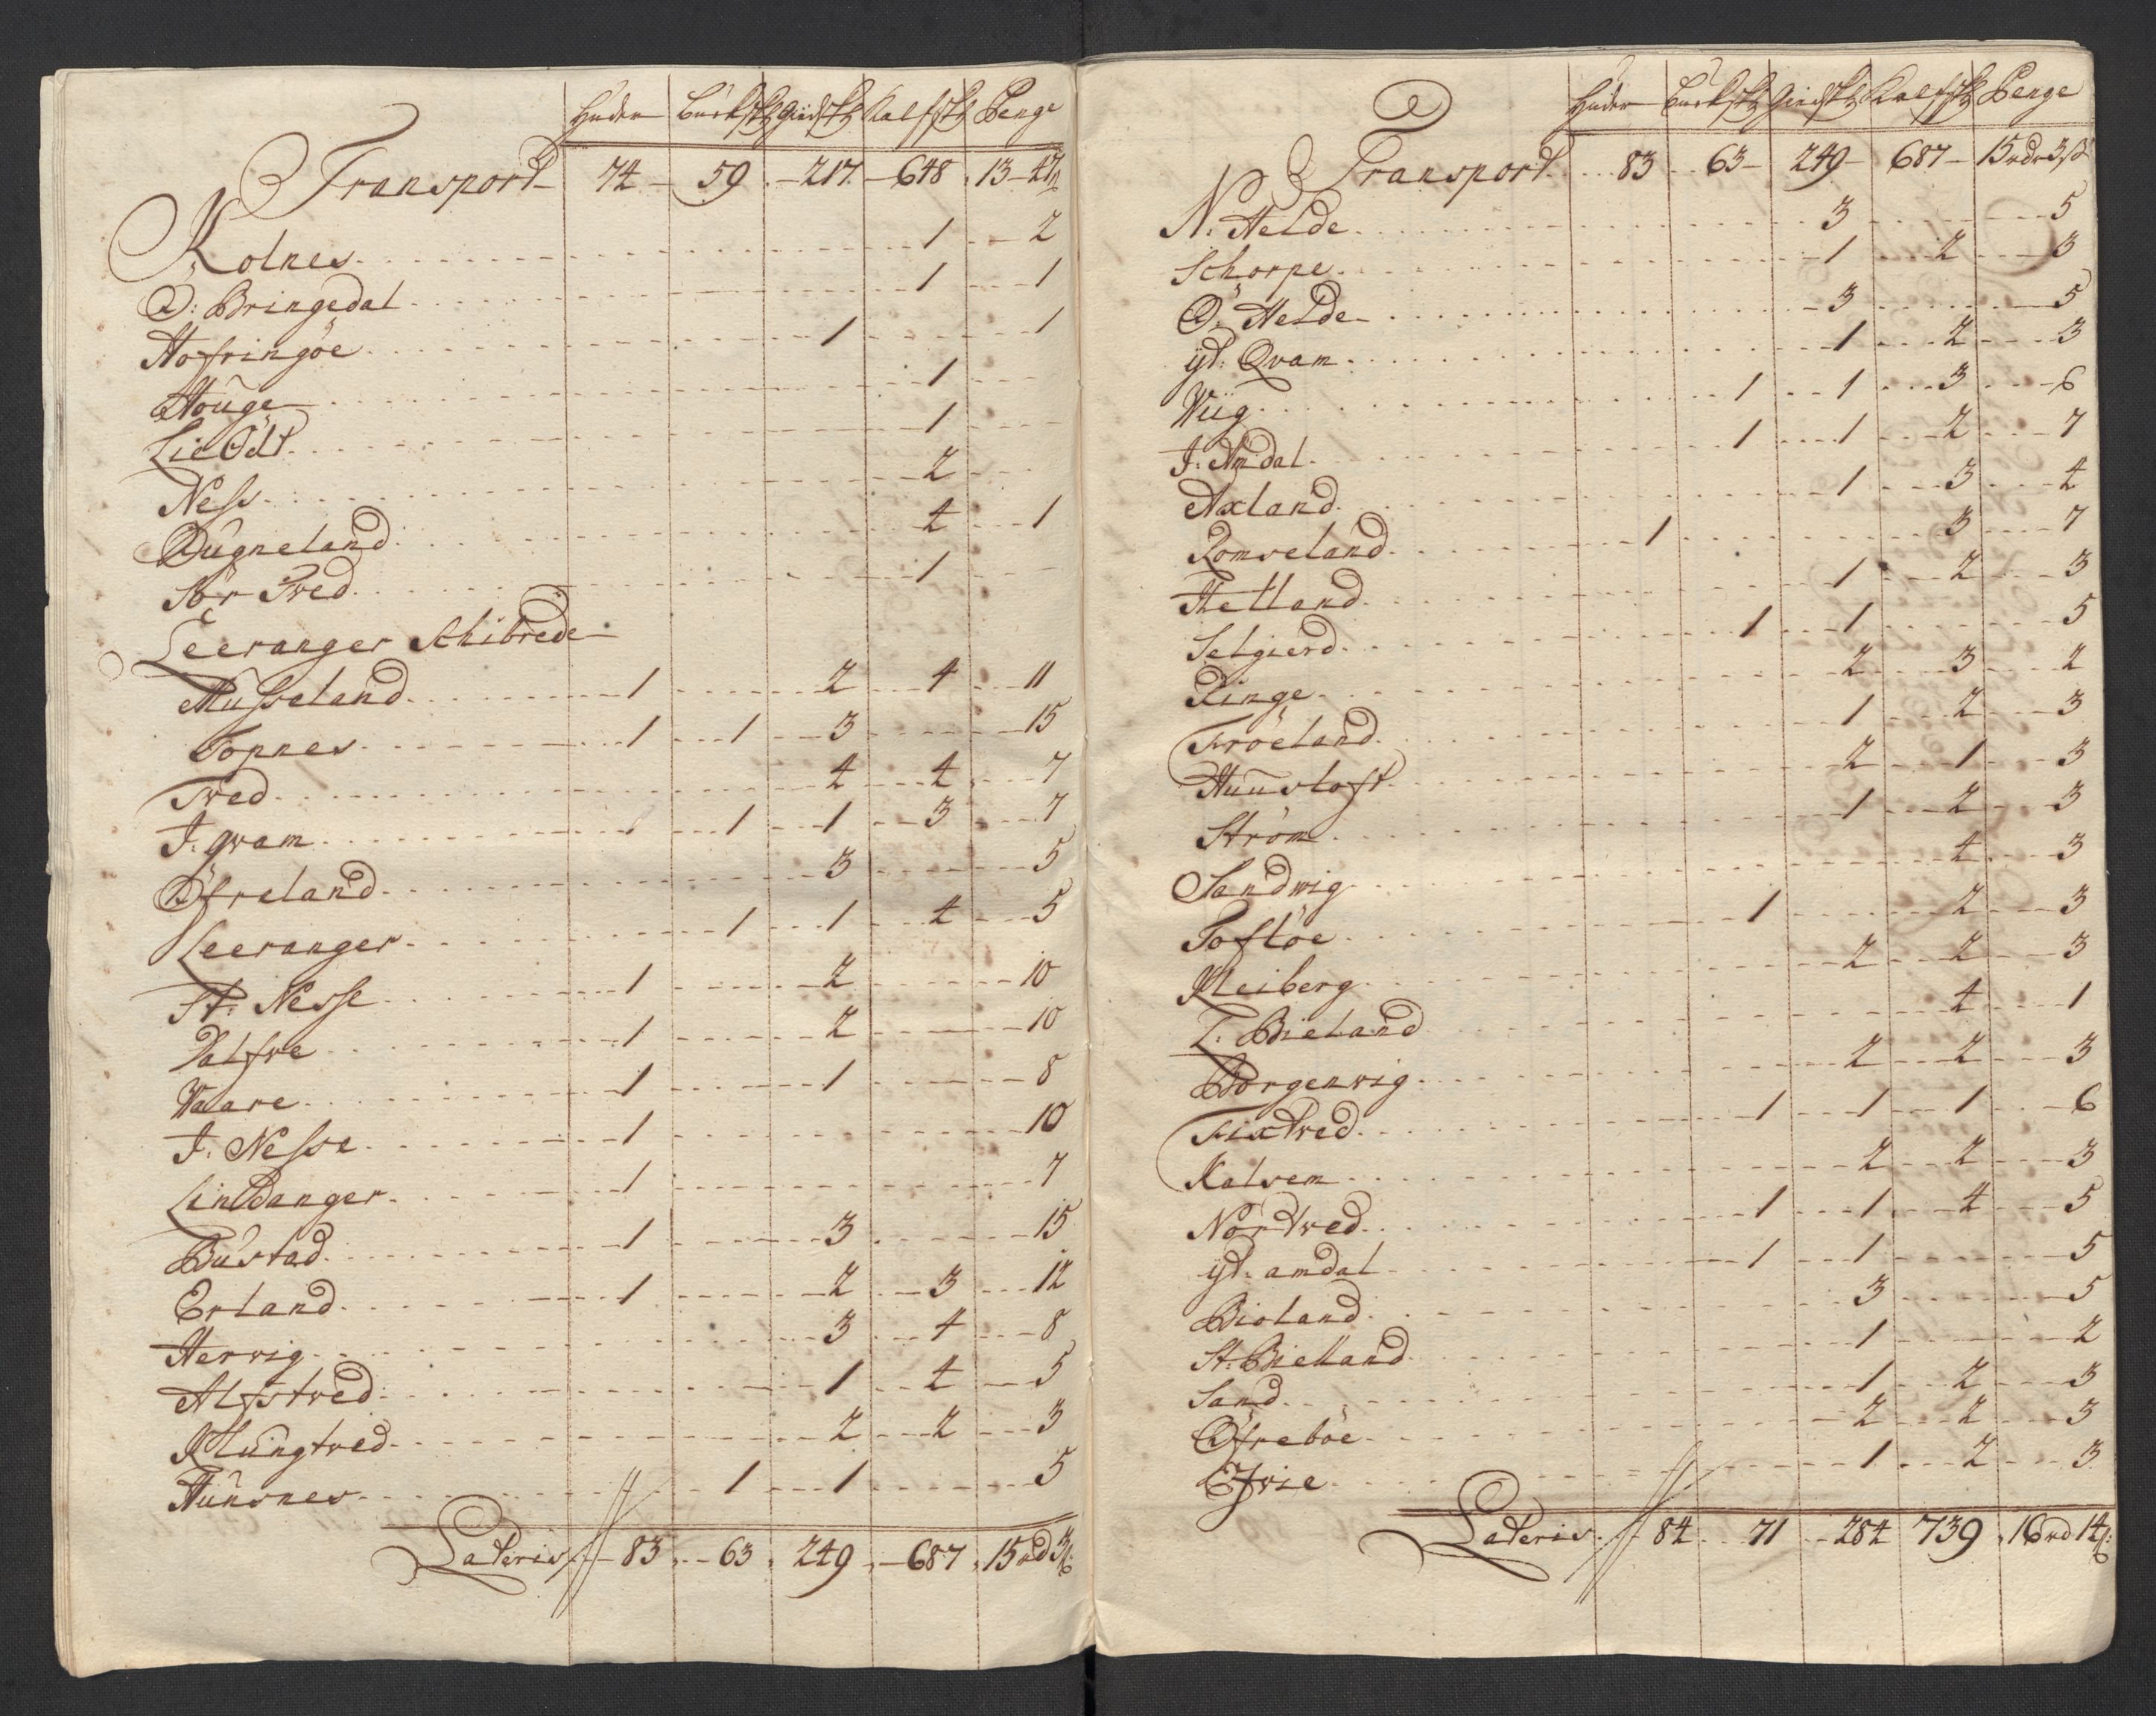 Huder Buckskl Giedskl Kalfskl Penge
Transport 74 59 217 648 13 47
Kolnes 1 2
Ø: Bringedal 1 1
Hofringöe 1 1
Houge 1
Lie Ödt 1
Ness 2
Dugneland 4 1
Sör Tved 1
Leeranger Schibrede
Musseland 1 2 4 11
Topnes 1 1 3 15
Tved 4 4 7
J. qvam 1 1 3 7
Öfreland 3 5
Leeranger 1 1 4 5
St: Nesse 1 2 10
Valfve 1 2 10
Waare 1 1 8
J. Nesse 1 10
Lindanger 1 7
Bustad 1 3 15
Erland 1 2 3 12
Hervig 3 4 8
Alfstved 1 4 5
Klungtved 2 2 3
Hunsnes 1 1 5
Lateris 83 63 249 687 15 rd 3
Huder Buckskl Giedskl Kalfskl Penge
Transport 83 63 249 687 15 rdr 3 ß
N. Helde 3 5
Schorpe 1 2 3
Ö. Helde 3 5
yt: Qvam 1 2 3
Wiig 1 1 3 6
J. Amdal 1 1 2 7
Axland 1 3 4
Romseland 1 3 7
Hetland 1 2 3
Selgierd 1 1 5
Ringe 2 3 2
Fröeland 1 2 3
Huustoft 2 1 3
Ström 1 2 3
Sandwig 4 3
Toftöe 1 2 3
Kleiberg 2 2 3
L. Bieland 4 1
Borgenvig 2 2 3
Fixtved 1 1 1 6
Kalvem 2 2 3
Nordtved 1 1 4 5
yt. amdal 1 1 5
Bioland 3 5
St. Bielland 1 2
Sand 1 2 3
Öfreböe 2 2 3
Efvie 1 2 3
Lateris 84 71 284 739 16 rd 14